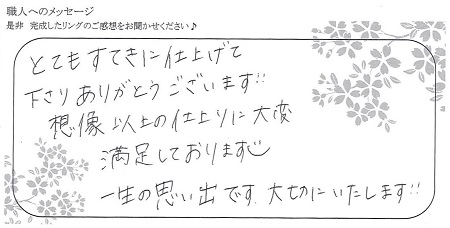 職人へのメッセージ
是非 完成したリングのご感想をお聞かせください♪
とてもすてきに仕上げて
下さりありがとうございます!!
想像以上の仕上りに大変
満足しております
一生の思い出です。大切にいたします!!